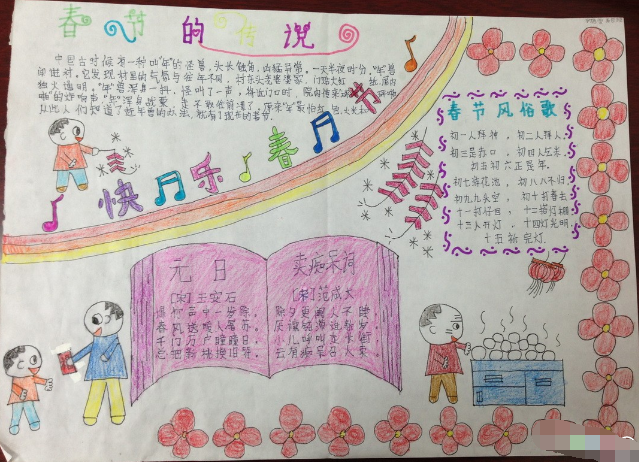 春节的传说
中国古时候有一种叫"年"的怪兽,头长触角,凶猛异常。一天半夜时分,"年"兽
闯进村。它发现村里的气氛与往年不同,村东头老婆婆家,门贴大红纸,屋内
独火通明,"年"兽浑身一抖,怪叫了一声,将近门口时,院内传来
"的炸响声,"年"浑身战栗,
从此人们知道了赶年兽的办法,就有了现在的春节。
快乐春节
春节风俗歌
初一人拜神,初二人拜人。
初三是赤口,初四人乞米。
初五初六正是年。
初七 花池,初八八不归。
初九九头空,初十打春去
十一 仔日,十二搭灯棚
十三人开灯,十四灯光明。
十五 完灯.
元日
[宋]王安石
爆竹声中一岁除,
春风送暖入屠苏。
千门万户瞳瞳日,
总把新桃换旧符。
卖痴呆词
[宋]范成大
除夕更阑人不睡
厌禳钝滞迎新岁
小儿呼叫走长街
云有痴呆召人卖